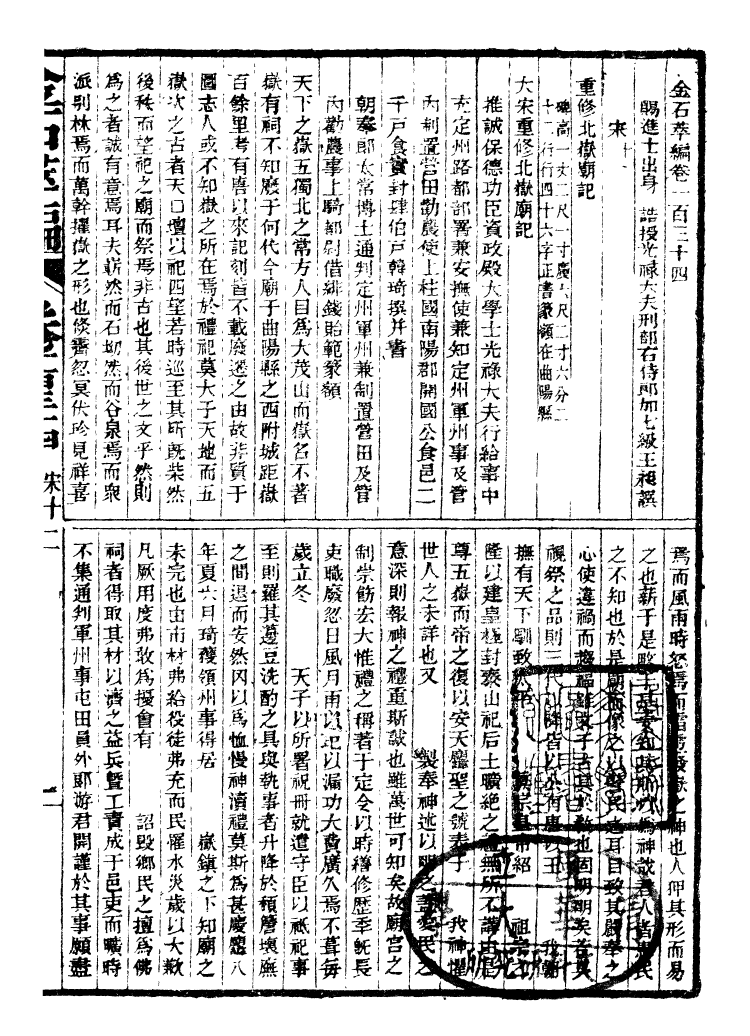 金石萃編卷一百三十四
賜進士出身 誥授光祿大夫刑部右侍郎加七級王昶譔
宋十二
重修北嶽廟記
碑高一丈二尺一寸廣六尺二寸六分二
十二行行四十六字正書篆額在曲陽縣
大宋重修北嶽廟記
推誠保德功臣資政殿大學士光祿大夫行給事中
充定州路都部署兼安撫使兼知定州軍州事及管
內制置營田勸農使上柱國南陽郡開國公食邑二
千戶食實封肆伯戶韓琦撰并書
朝奉郎太常博士通判定州軍州兼制置營田及管
內勸農事上騎都尉借緋錢貽範篆額
天下之嶽五獨北之常方人目為大茂山而嶽名不著
嶽有祠不知廢于何代今廟于曲陽縣之西附城距嶽
百餘里考有唐以來記刻皆不載廢遷之由故非質于
圖志人或不知嶽之所在焉於禮祀莫大于天地而五
嶽次之古者天□壇以祀四望若時巡至其所既柴然
後秩而望祀之廟而祭焉非古也其後世之文乎然則
為之者誠有意焉耳夫嶄然而石坳然而谷泉焉而眾
派別林焉而萬幹擢嶽之形也倐霽忽冥伏珍見祥喜
焉而風雨時怒焉而 嶽之神也人仰其形而易
之也薪于是 神
之不知也於是廟而像之以警民之耳目致其嚴奉之
心使違禍而趨福 明矣若其
禋祭之品則三代以降皆以公有唐以王 我
撫有天下馴致 祖宗
隆以建皇極封泰山祀后土曠絕之禮無所不講
尊五嶽而帝之復以安天 聖之號 我神懼
世人之未詳也又 製奉神述以明 民之
意深則報神之禮重斯誠也雖萬世可知矣故廟宮之
制崇飾宏大惟禮之稱著于定令以時繕修歷季旣長
吏職廢忽日風月雨以圮以漏功大費廣久焉不葺每
歲立冬 天子以所署祝冊就遣守臣以祗祀事
至則羅其籩豆洗酌之具與執事者升降於頹簷壞廡
之間退而安然罔以為恤慢神瀆禮莫斯為甚慶曆八
年夏六月琦獲領州事得居 嶽鎮之下知廟之
未完也由市材弗給役徒弗充而民罹水災歲以大歉
凡厥用度弗敢為擾會有 詔毀鄉民之擅為佛
祠者得取其材以濟之益兵暨工責成于邑吏而曠時
不集通判軍州事屯田員外郎游君開謹於其事願盡
金石萃編 卷一百三十四 宋十二 一